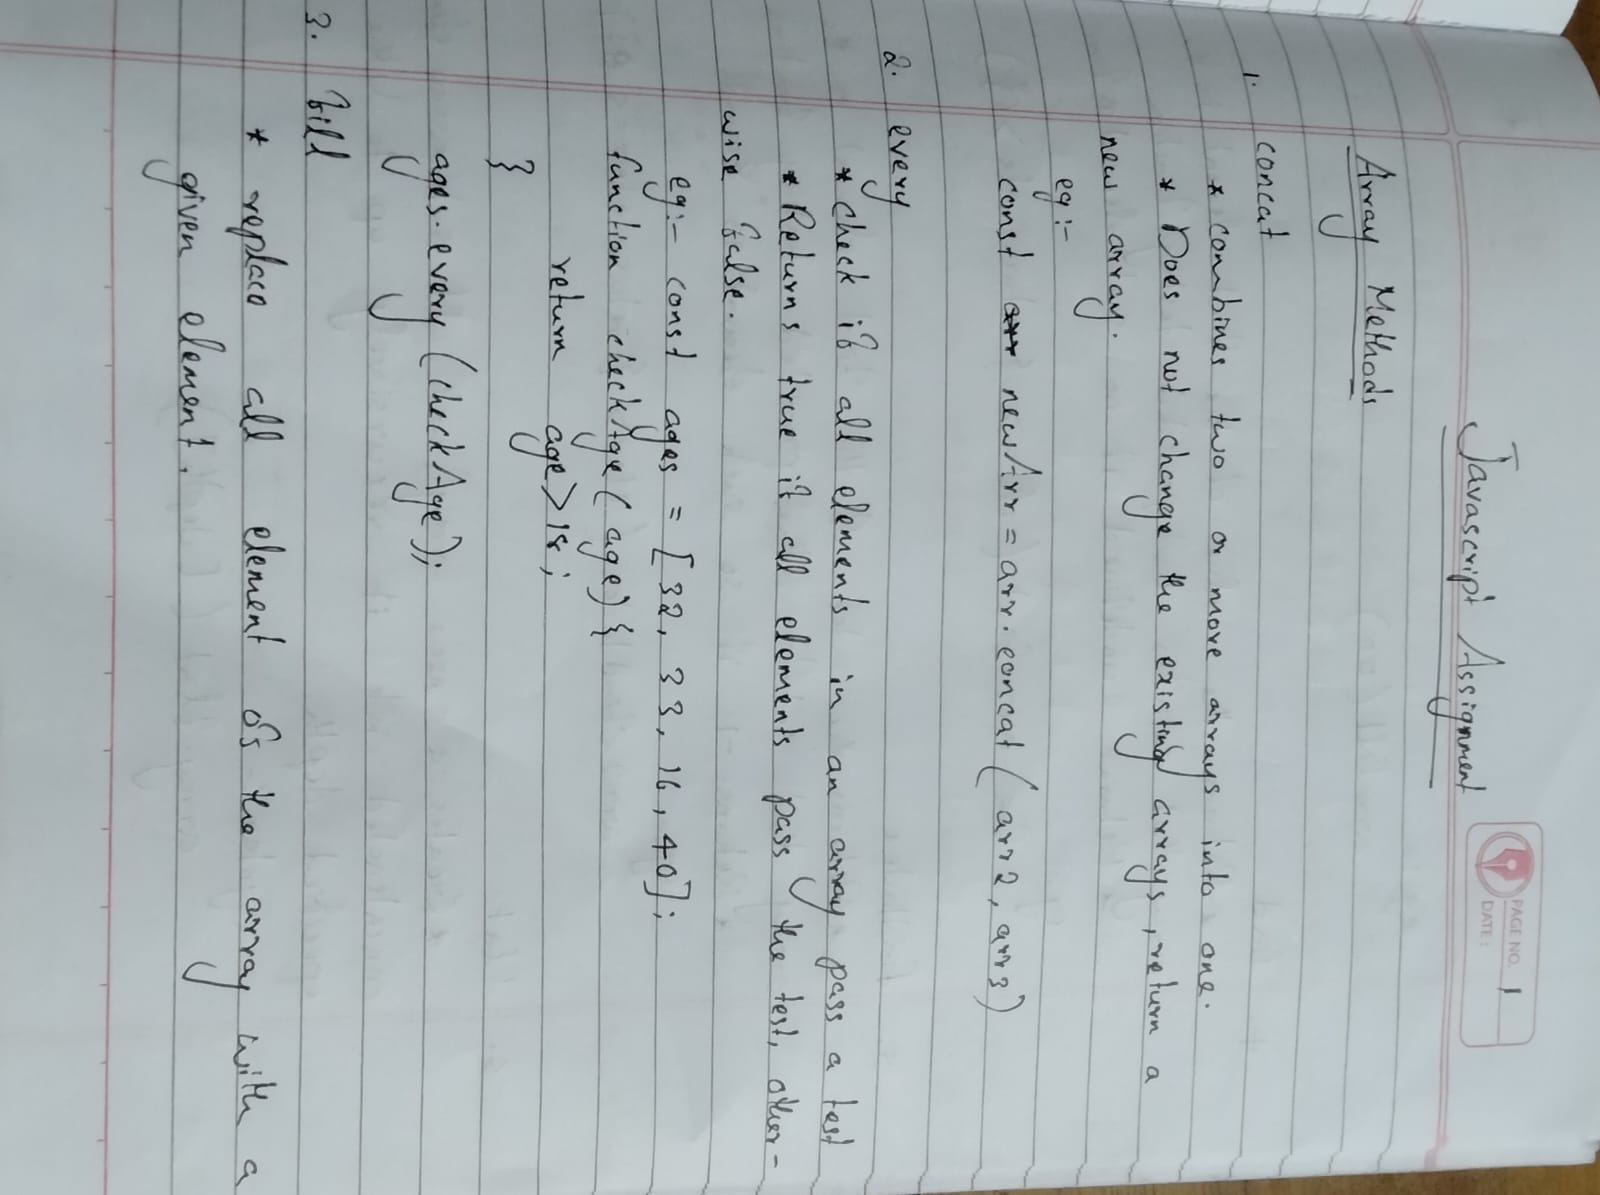 PAGE NO. 1
DATE:
Javascript Assignment
Array Methods
1. concat
* combines two or more arrays into one.
* Does not change the existing arrays, return a
new array.
eg :-
const arr newArr = arr.concat ( arr2, arr3)
2. every
* check if all elements in an array pass a test
* Returns true if all elements pass the test, other-
wise false.
eg:- const ages = [32, 33, 16, 40];
function checkAge ( age) {
return age > 18;
}
ages. every (checkAge);
3. fill
* replace all element of the array with a
given element.